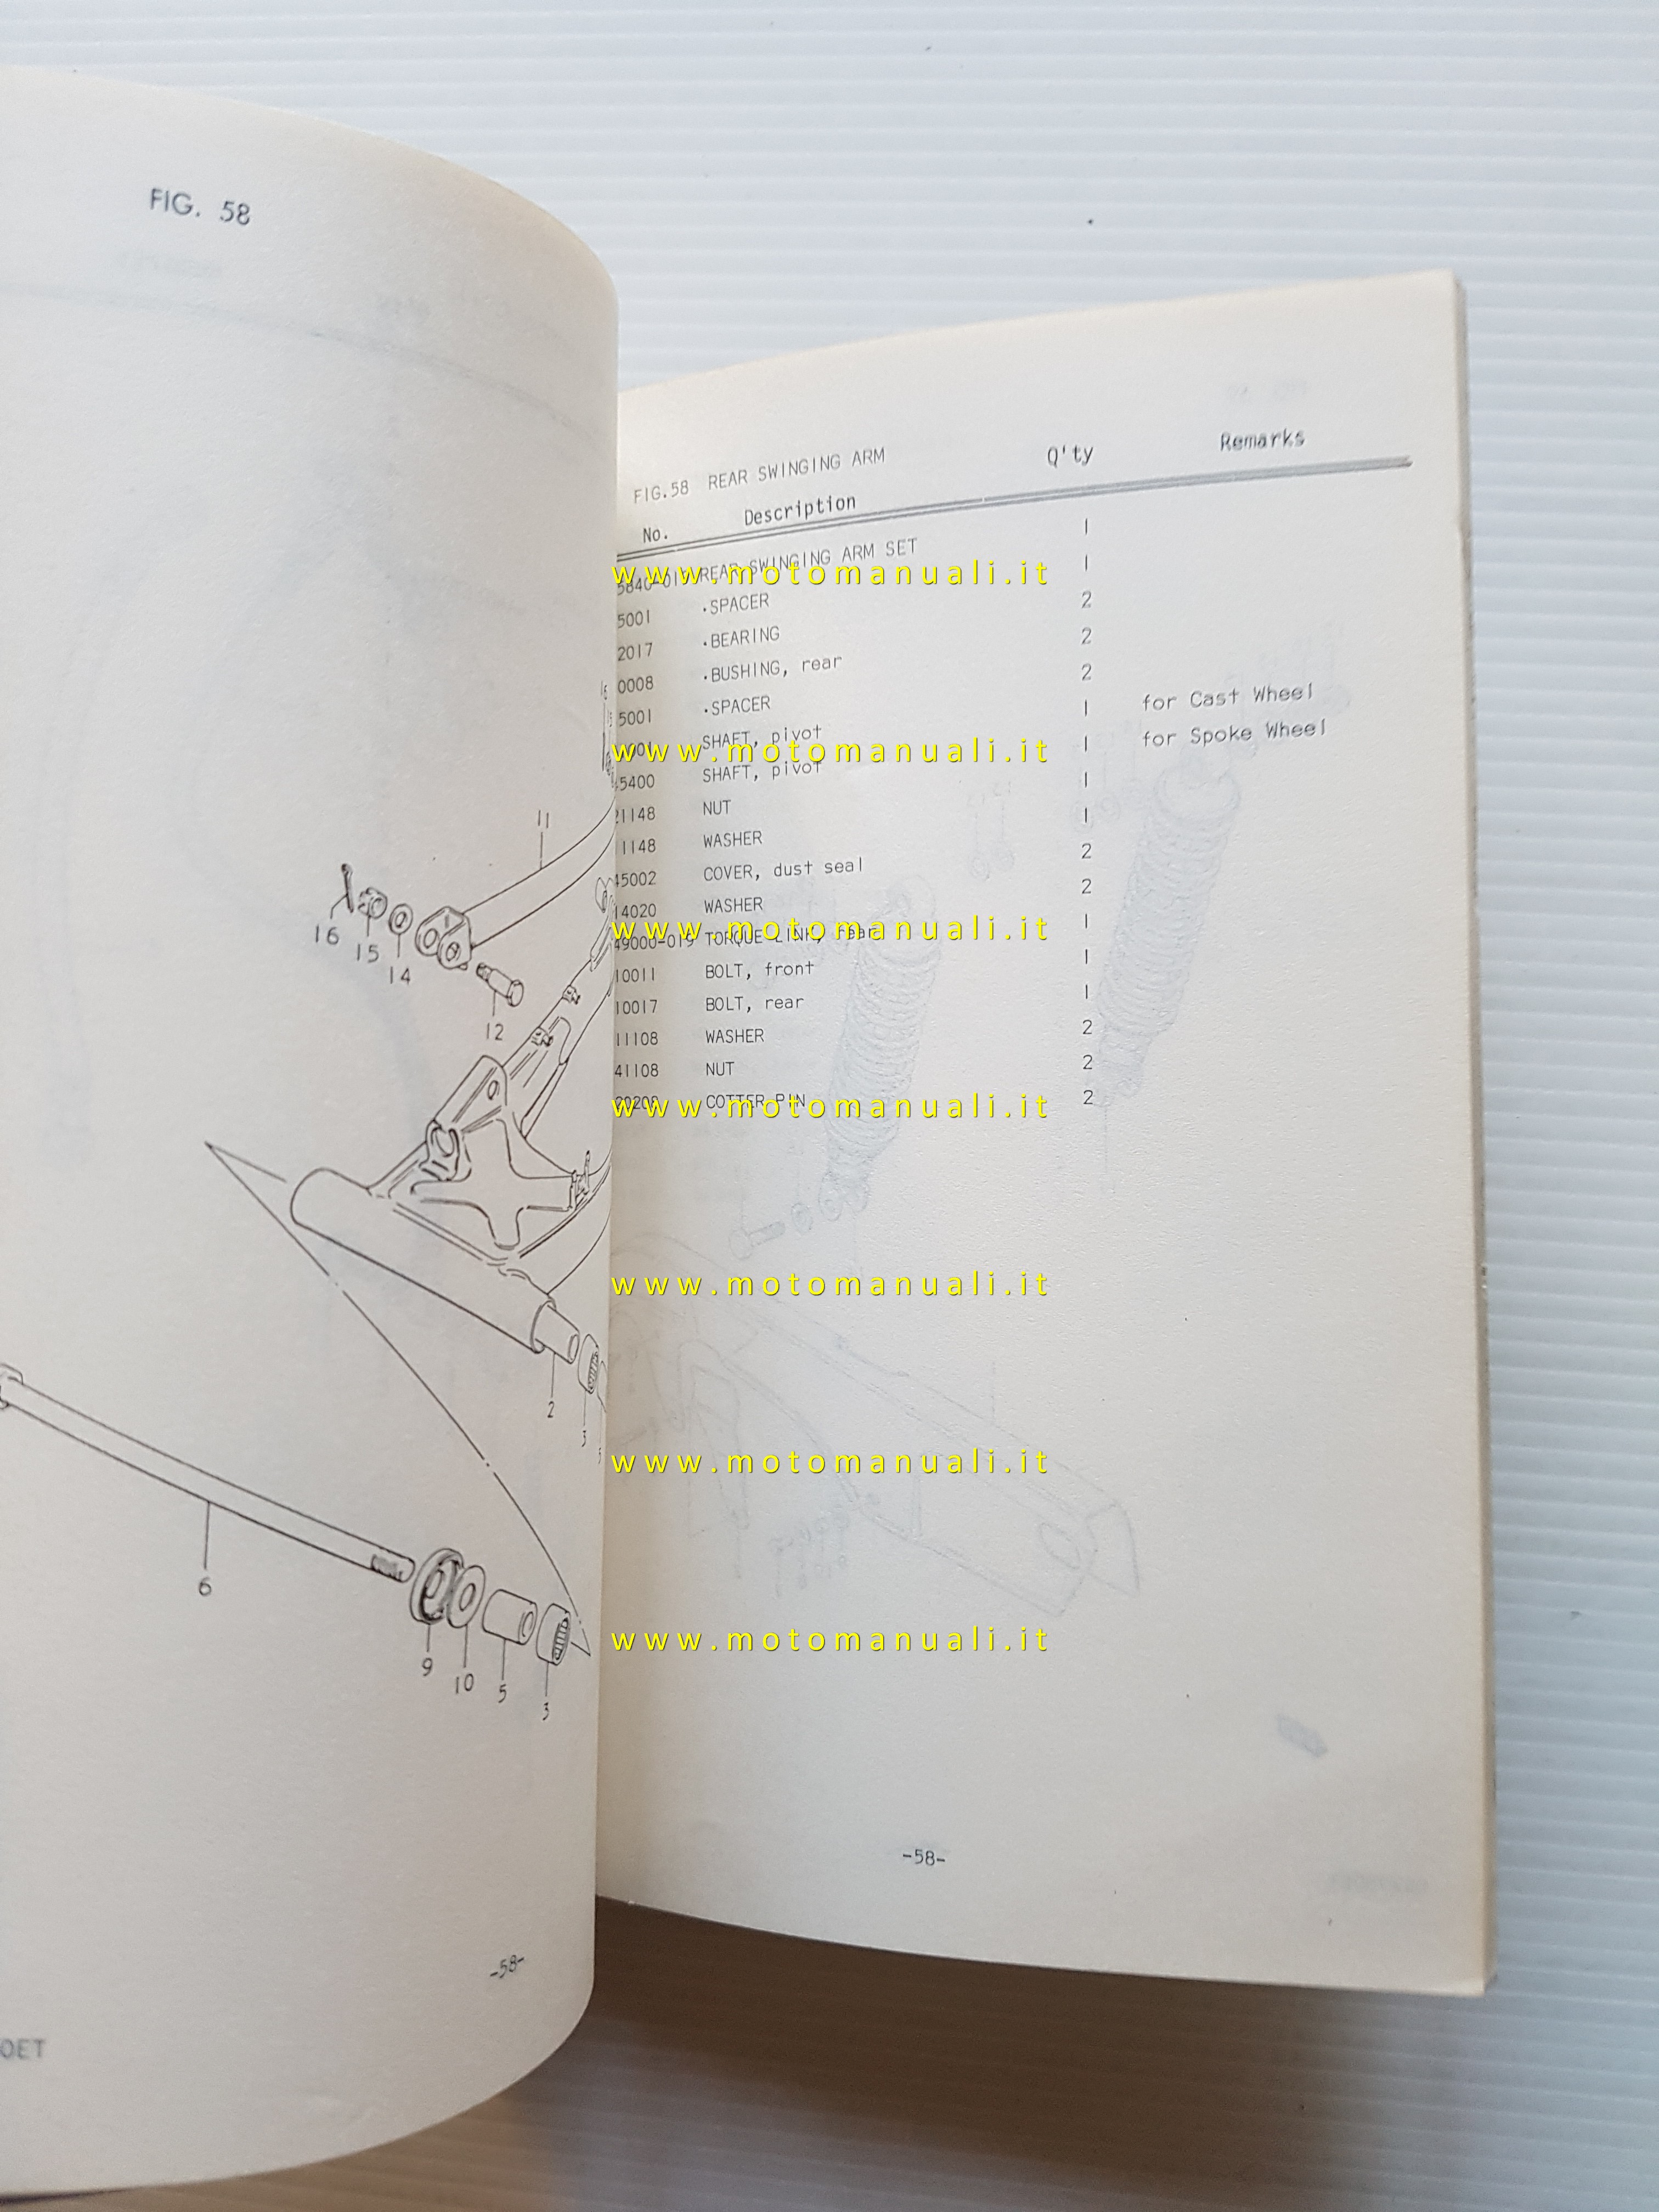 FIG. 58
11
16
15
14
12
2
3
6
9
10
5
3
-58-
OET
FIG.58 REAR SWINGING ARM
No. Description Q'ty Remarks
REAR SWINGING ARM SET 1
5001 .SPACER 1
2017 .BEARING 2
0008 .BUSHING, rear 2
5001 .SPACER 2
SHAFT, pivot 1 for Cast Wheel
5400 SHAFT, pivot 1 for Spoke Wheel
21148 NUT 1
1148 WASHER 1
45002 COVER, dust seal 2
14020 WASHER 2
49000-019 TORQUE LINK, rear 1
10011 BOLT, front 1
10017 BOLT, rear 1
11108 WASHER 2
41108 NUT 2
COTTER PIN 2
-58-
www.motomanuali.it
www.motomanuali.it
www.motomanuali.it
www.motomanuali.it
www.motomanuali.it
www.motomanuali.it
www.motomanuali.it